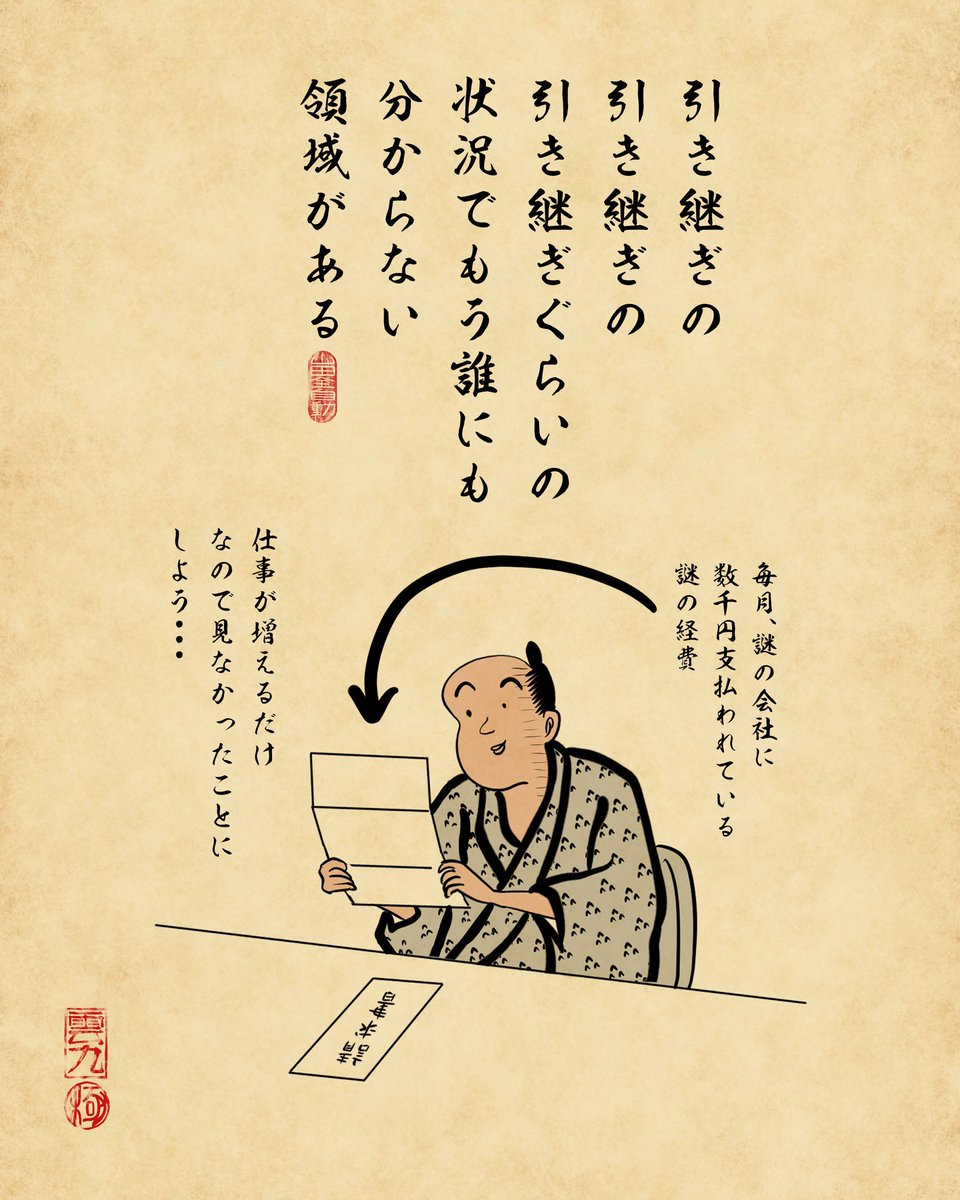 引き継ぎの
引き継ぎの
引き継ぎぐらいの
状況でもう誰にも
分からない
領域がある
毎月、謎の会社に
数千円支払われている
謎の経費
仕事が増えるだけ
なので見なかったことに
しよう・・・
請求書